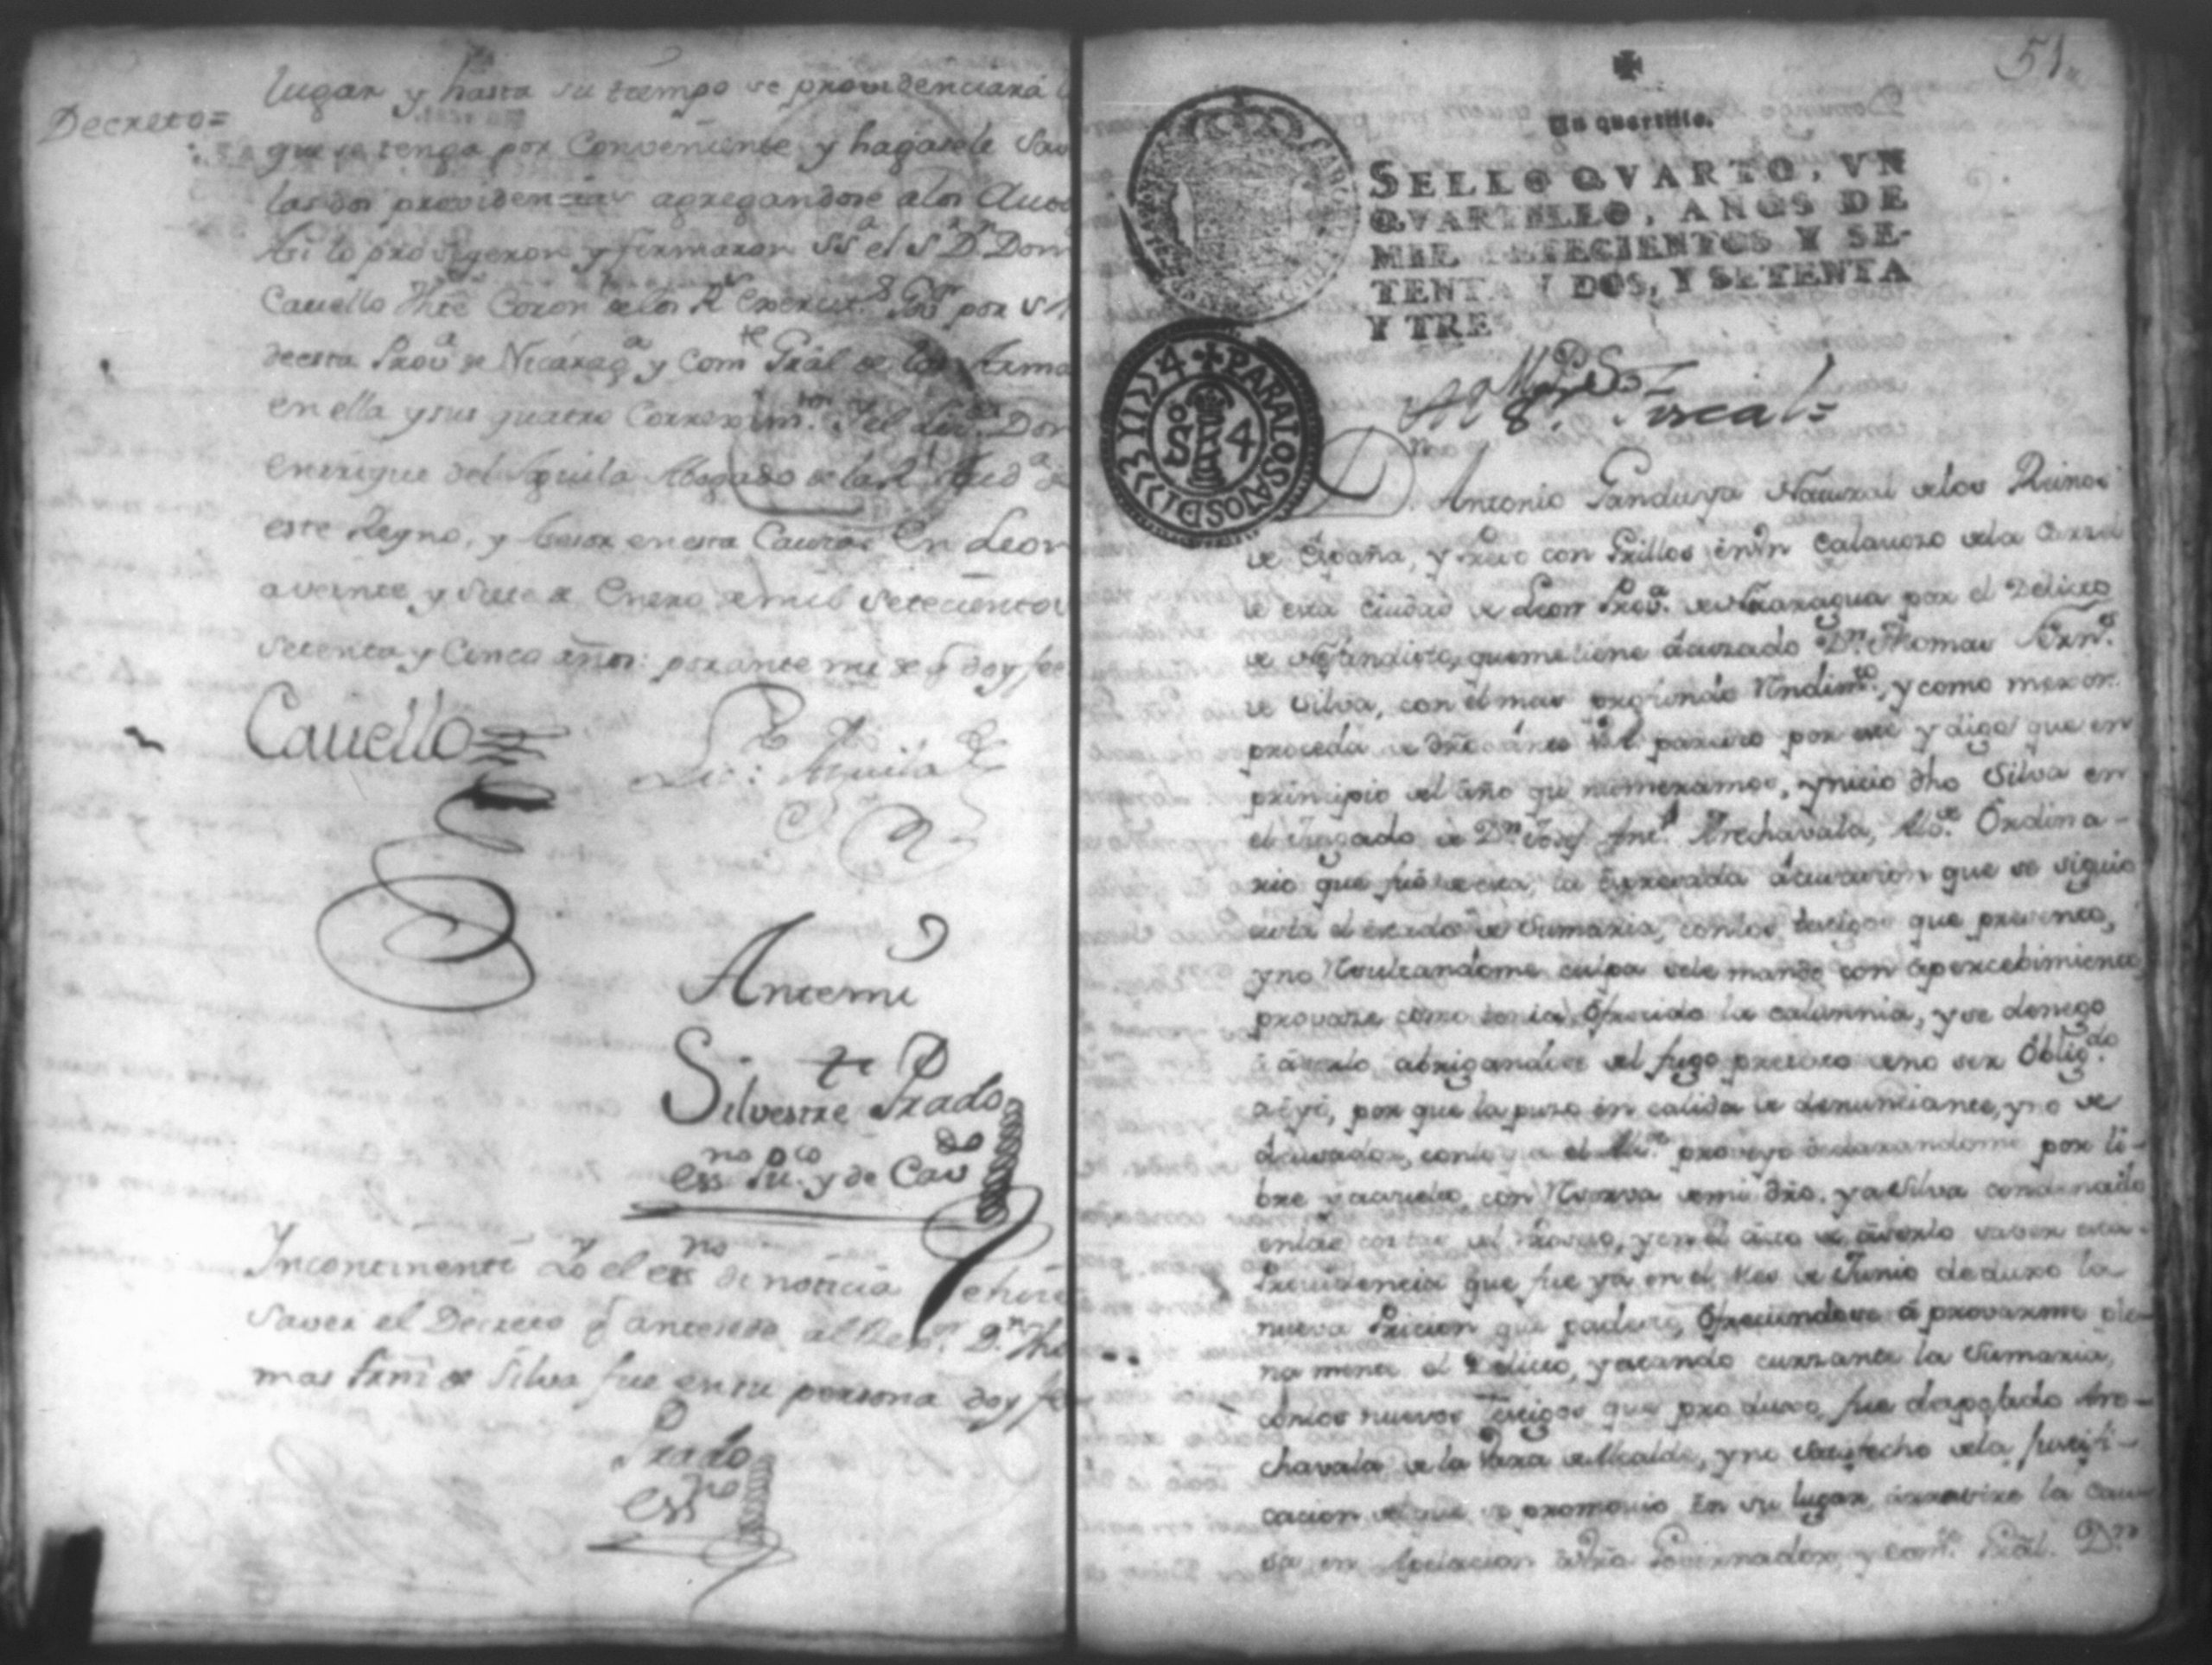 lugar y hasta su tiempo se providenciará
Decreto=
que se tenga por Conveniente y hagasele Sav
las dos providencias agregandose a los Autos
Asi lo proveyeron y firmaron SSª el Sr Dn Dom
Cauello Thte Coron de los Rs Exercitos Gov por S M
de esta Provª de Nicaragª y Comte Gräl de las Arma
en ella y sus quatro Correximtos y el Licdo Don
Enrrique del Aguila Abogado de la Rl Audª de
este Reyno, y Asesor en esta Causa: En Leon
a veinte y siete de Enero de mil Setecientos
Setenta y Cinco años: por ante mi de q doy fee
Cauello
Licdo Aguila
Antemi
Silvestre Prado
Essno puco y de Cavdo
Yncontinenti Yo el essno di noticia e hise
Saver el Decreto q antesede al Dn Tho
mas frnz de Silva fue en su persona doy fe
Prado
Essno
51
Un quartillo.
SELLO QVARTO, VN
QVARTILLO, AÑOS DE
MIL SETECIENTOS Y SE-
TENTA Y DOS, Y SETENTA
Y TRES
PARA LOS AÑOS DE 1774
4
M P S
Al Sr Fiscal=
Dn Antonio Panduya Natural de los Reinos
de España, y Preso con Grillos en un Calavozo de la Carzel
de esta Ciudad de Leon Provª de Nicaragua por el Delicto
de Nefandisto, que me tiene acusado Dn Thomas Frnz
de Silva, con el mas profundo Rndimto, y como mexor
proceda de dño ante V A paresco por este y digo que en
principio del año qe numeramos, ynicio dho Silva en
el Juzgado de Dn Josef Antº Arechavala, Alce Ordina-
rio que fue de esta, la expresada acusacion que se siguio
asta el estado de Sumaria, con los testigos que presento,
y no Resultandome culpa se le mandó con apercebimiento
provare como tenia ofrecido la calumnia, y se denego
a aserlo abrigandose del fugo pretexto de no ser Obligdo
a eyo, por que la puso en calida de denunciante, y no de
Acusador, con lo que el Alce proveyo declarandome por li-
bre y absuelto, con Reserva de mi dño. y a Silva condenado
en las costas del Proceso, y en el acto de aserlo saver esta
Providencia que fue ya en el Mes de Junio deduxo la
nueva Pricion que padesco, ofreciendose á provarme ple-
na mente el Delicto, y estando cursante la Sumaria,
con los nuevos Testigos que produxo, fue despojado Are-
chavala de la Vara de Alcalde, y no satisfecho de la justifi-
cacion del que se promovio En su lugar, la cau-
sa en Apelacion Governador, y Comte Gräl. Dn